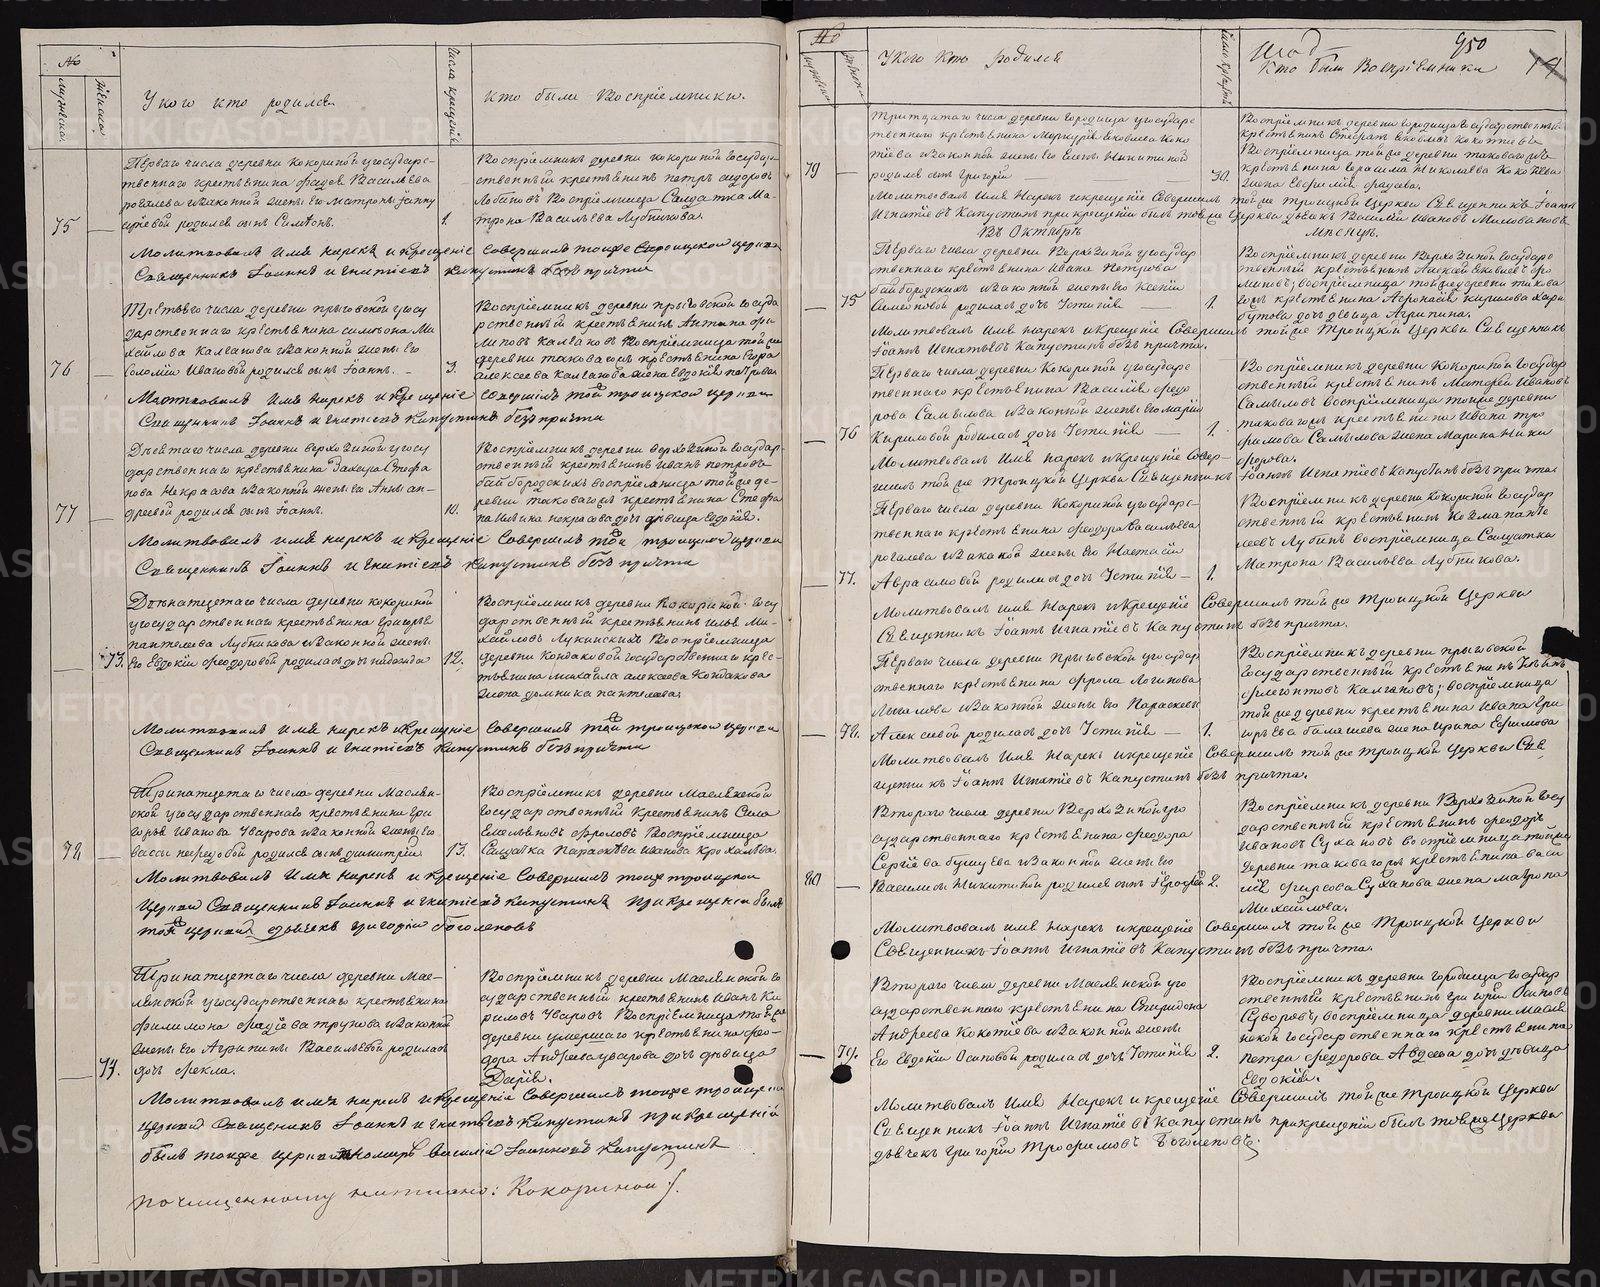 №
мужеска.
женска.
У кого кто родился
Числа крещенія
Кто были Воспріемники.
Перваго числа деревни Кокориной у государс-
твеннаго крестьянина Фадея Васильева
рогалева и законной жены его матроны
родился сынъ Симеонъ.
75
1.
Воспріемникъ деревни кокориной государ-
ственный крестьянинъ петръ сидоровъ
Воспріемница Салдатка Ма-
трона Васильева Лубникова.
Молитвовалъ имя нарекъ и крещеніе совершилъ тойже троицкой церкви
Священникъ Іоаннъ Игнатіевъ Капустинъ безъ причта
Третьяго числа деревни прыговской госу
дарственнаго крестьянина симеона Ми
хайлова Калганова и законной жены его
Соломіи Ивановой родился сынъ Іоаннъ.
76
3.
Воспріемникъ деревни прыговской госуда
рственный крестьянинъ Антипа фи
липовъ Калгановъ Воспріемница тойже
деревни таковагожъ крестьянина Егора
алексеева Калганова жена Евдокія петрова
Молитвовалъ имя нарекъ и крещеніе совершилъ той троицкой церкви
Священникъ Іоаннъ Игнатіевъ Капустинъ безъ причта
Десятаго числа деревни верхозиной у госу
дарственнаго крестьянина Захара Стефа
нова Некрасова и законной жены его Анны ан-
дреевой родился сынъ Іоаннъ.
77
10.
Воспріемникъ деревни верхозиной государ-
ственный крестьянинъ иванъ петровъ
байбородскихъ воспріемница тойже де-
ревни таковагожъ крестьянина Стефа
на Ильина некрасова дочь девица Евдокія.
Молитвовалъ имя нарекъ и крещеніе совершилъ той троицкой церкви
Священникъ Іоаннъ Игнатіевъ Капустинъ безъ причта
Двенатцетаго числа деревни кокориной
у государственнаго крестьянина Григорья
пантелева Лубникова и законной жены
его Евдокіи Феодоровой родилась дочь надежда
73.
12.
Воспріемникъ деревни Кокориной госу
дарственный крестьянинъ Илья Ми-
хайловъ Лукинскихъ Воспріемница
деревни Кондаковой государственнаго крес-
тьянина михайла алексеева Кондакова
жена домника пантелеева.
Молитвовалъ имя нарекъ и крещеніе совершилъ той троицкой церкви
Священникъ Іоаннъ Игнатіевъ Капустинъ безъ причта
Тринатцетаго числа деревни Маслян-
ской у государственнаго крестьянина Гри
горья Иванова Уварова и законной жены его
вассы нефедовой родился сынъ димитрій
78
13.
Воспріемникъ деревни Маслянской
государственный Крестьянинъ Сила
Емельяновъ фроловъ Воспріемница
Салдатка Параскева Иванова Крохалева.
Молитвовалъ имя нарекъ и крещеніе совершилъ тойже троицкой
церкви Священникъ Іоаннъ Игнатіевъ Капустинъ при крещеніи былъ
той церкви дьячекъ григорій боголеповъ
Тринатцетаго числа деревни Мас-
лянской у государственнаго крестьянина
Филимона и законной
жены его Агрипины Васильевой родилась
дочь Фекла.
74.
Воспріемникъ деревни Маслянской го
сударственный крестьянинъ Иванъ Ки
риловъ Уваровъ Воспріемница тойже
деревни умершаго крестьянина фео-
дора Андреева уварова дочь девица
Дарія.
Молитвовалъ имя нарекъ и крещеніе совершилъ тойже троицкой
церкви Священникъ Іоаннъ Игнатіевъ Капустинъ при крещеніи
былъ тойже церкви пономарь василій Іоанновъ Капустинъ
По чищенному написано: Кокориной
№
У кого кто родился
950
Кто были Воспріемники
Тритцатаго числа деревни Городища у государс
твеннаго крестьянина Меркурія Яковлева Коко
тѣева и законной жены его Елены Никитиной
родился сынъ Григорій
79
30.
Воспріемникъ деревни городища государственный
крестьянинъ Стефанъ Яковлевъ Кокотѣевъ
Воспріемница тойже деревни таковагожъ
крестьянина Герасима Николаева Кокотѣва
жена Евфимія Фадеева.
Молитвовалъ Имя Нарекъ и крещеніе Совершилъ тойже Троицкой Церкви Священникъ Іоаннъ
Игнатіевъ Капустинъ при крещеніи былъ тойже Церкви дьякъ Василій Ивановъ Миловановъ
Въ Октябрѣ Месяцѣ.
Перваго числа деревни Верхозиной у государ
ственнаго крестьянина Ивана Петрова
байбородскихъ и законной жены его Ксеніи
Семеновой родилась дочь Устинія
75
1.
Воспріемникъ деревни Верхозиной государс
твенный крестьянинъ Алексей Яковлевъ фро
ловъ; воспріемница тойже деревни такова
гожъ крестьянина Афонасія Кирилова Хара
бутова дочь девица Агрипина.
Молитвовалъ Имя нарекъ и крещеніе Совершилъ тойже Троицкой Церкви Священникъ
Іоаннъ Игнатьевъ Капустинъ безъ причта.
Перваго числа деревни Кокориной у государс
твеннаго крестьянина Василія Федо
рова Самылова и законной жены его Маріи
Кириловой родилась дочь Устинія
76
1.
Воспріемникъ деревни Кокориной Государ
ственный крестьянинъ Матфей Ивановъ
Самыловъ воспріемница тойже деревни
таковагожъ крестьянина Ивана Тро
фимова Самылова жена Марина Ники
форова.
Молитвовалъ Имя нарекъ и крещеніе Совер-
шилъ тойже Троицкой Церкви Священникъ Іоаннъ Игнатіевъ Капустинъ безъ причта
Перваго числа деревни Кокориной у государс-
твеннаго крестьянина Феодора Васильева
рогалева и законной жены его Настасіи
Аврамовой родилась дочь Устинія
77.
1.
Воспріемникъ деревни Кокориной Государ
ственный крестьянинъ Козма Панте
леевъ Лубнъ воспріемница Салдатка
Матрона Васильева Лубникова.
Молитвовалъ Имя Нарекъ и крещеніе Совершилъ тойже Троицкой Церкви
Священникъ Іоаннъ Игнатіевъ Капустинъ безъ причта.
Перваго числа деревни Прыговской у государ
ственнаго крестьянина Фрола Логинова
и законной жены его Параскеви
Алексеевой родилась дочь Устинія
78.
1.
Воспріемникъ деревни прыговской
Государственный крестьянинъ
Флегонтовъ Калгановъ; воспріемница
тойже деревни крестьянина Ивана Гри
горьева балашева жена Ирина Ефимова
Молитвовалъ Имя Нарекъ и крещеніе Совершилъ тойже Троицкой Церкви Свя
щенникъ Іоаннъ Игнатіевъ Капустинъ безъ причта.
Втораго числа деревни Верхозиной у го
сударственнаго крестьянина Феодора
Сергіева и законной жены его
Василисы Никитиной родился сынъ Ерофей
80
2.
Воспріемникъ деревни Верхозиной Госу
дарственный крестьянинъ Феодоръ
Ивановъ Сухановъ воспріемница тойже
деревни таковагожъ крестьянина Васи
лія Фирсова Суханова жена Матрона
Михайлова.
Молитвовалъ имя Нарекъ и крещеніе Совершилъ тойже Троицкой Церкви
Священникъ Іоаннъ Игнатіевъ Капустинъ безъ причта.
Втораго числа деревни Маслянской у го
сударственнаго крестьянина Спиридона
Андреева Кокотѣева и законной жены
его Евдокіи Осиповой родилась дочь Устинія
79.
2.
Воспріемникъ деревни Городища Государ
ственный крестьянинъ Григорій Осиповъ
Суворовъ; воспріемница деревни Масля
нской Государственнаго крестьянина
Петра Федорова Авдеева дочь девица
Евдокія.
Молитвовалъ Имя Нарекъ и крещеніе Совершилъ тойже Троицкой Церкви
Священникъ Іоаннъ Игнатіевъ Капустинъ при крещеніи былъ тойже Церкви
дьячекъ Григорій Трофимовъ Боголеповъ.
METRIKI.GASO-URAL.RU